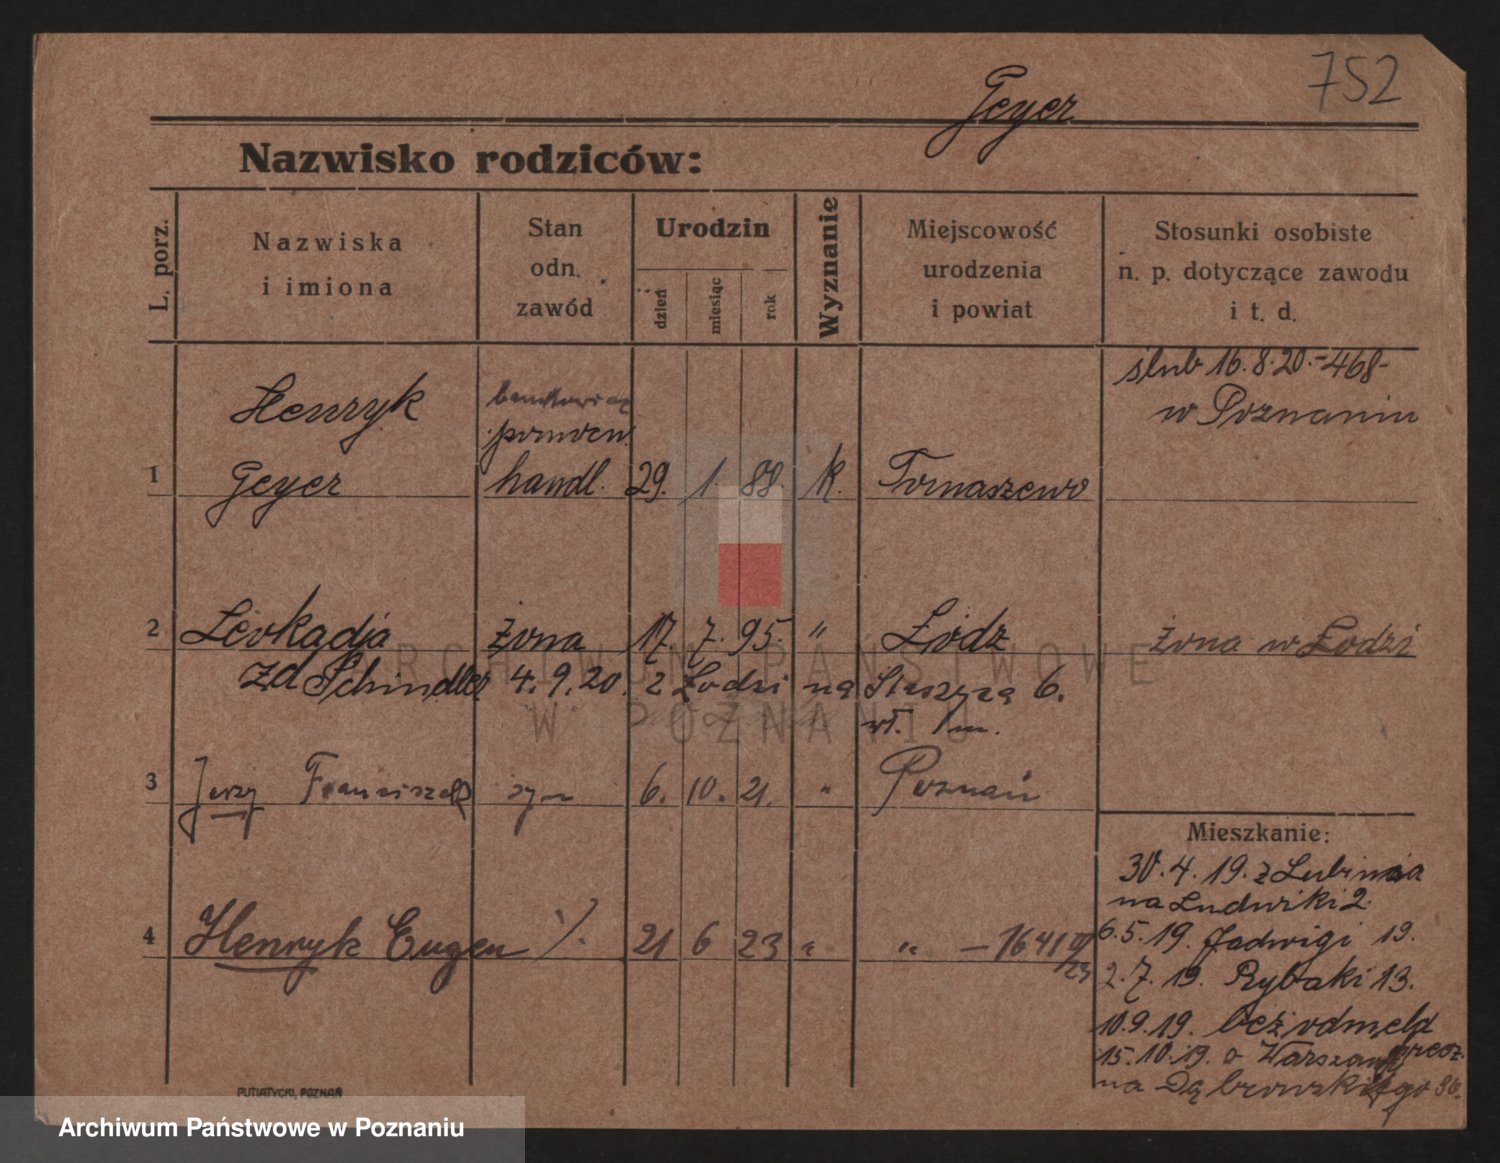 752
Geyer
Nazwisko rodziców:
L. porz.
Nazwiska
i imiona
Stan
odn.
zawód
Urodzin
dzień
miesiąc
rok
Wyznanie
Miejscowość
urodzenia
i powiat
Stosunki osobiste
n. p. dotyczące zawodu
i t. d.
ślub 16.8.20.-468-
w Poznaniu
Henryk
pomocn.
1 Geyer handl. 29. 1. 88. K. Tomaszewo
2 Leokadja żona 17. 7. 95. " Łódz żona w Łodzi
zd Schindler 4.9.20. z Łodzi na Staszyca 6.
m.
3 Jerzy Franciszek syn 6. 10. 21. " Poznań
Mieszkanie:
30.4.19. z Lubinia
na Ludwiki 2.
4 Henryk Eugen 21 6 23 " " — 1641
23
6.5.19. Jadwigi 19.
2.7.19. Rybaki 13.
10.9.19. bez odmeld
15.10.19. Warszawy
na Dąbrowskiego 36.
PUTIATYCKI, POZNAŃ
ARCHIWUM PAŃSTWOWE
W POZNANIU
Archiwum Państwowe w Poznaniu